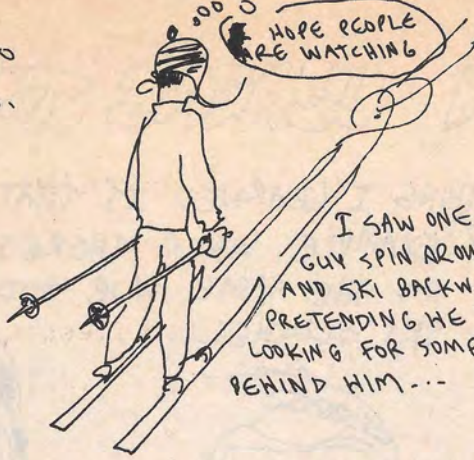 HOPE PEOPLE
RE WATCHING
I SAW ONE
GUY SPIN AROU
AND SKI BACKW
PRETENDING HE
LOOKING FOR SOME
BEHIND HIM...